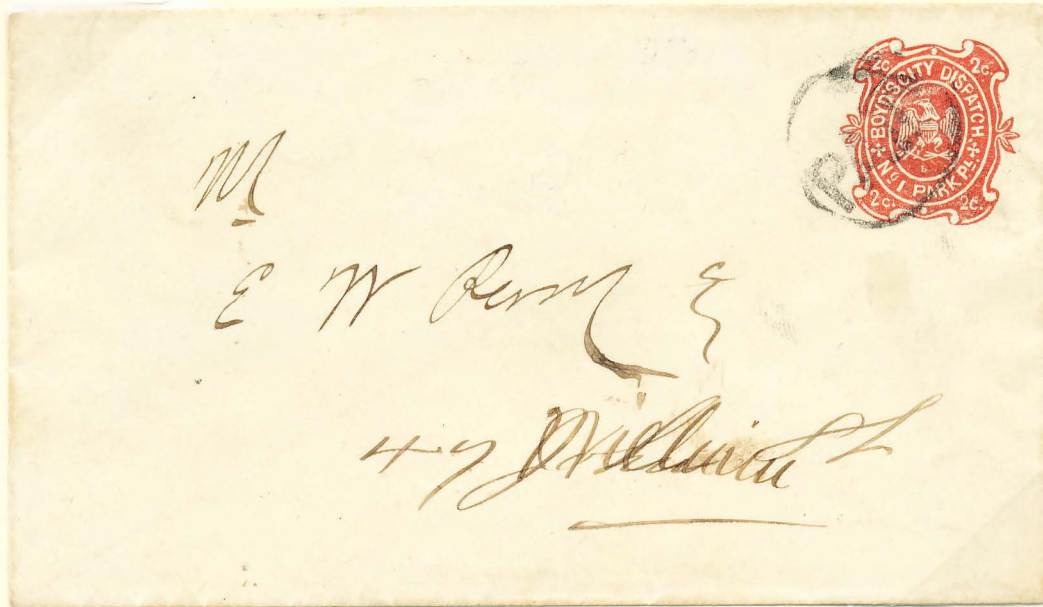 2c. 2c.
BOYD'S CITY DISPATCH
No 1 PARK PL.
2c. 2c.
PAID
M
E W Perry E
47 William St